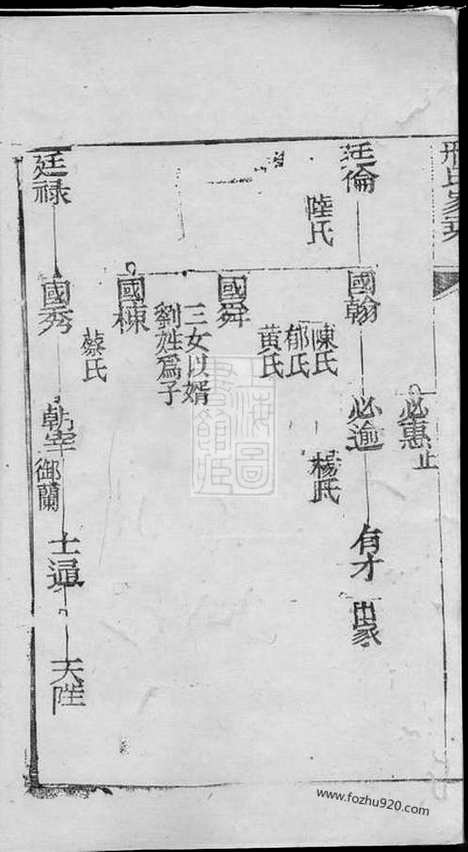 邢氏家
必惠 止
廷倫
陸氏
國翰
陳氏
郁氏
黄氏
必逾
楊氏
有才
出家
國舜
三女以婿
劉姓爲子
國棟
廷禄
國秀
蔡氏
朝宰 御蘭
士逼
天陛
上海圖
書館藏
www.fozhu920.com